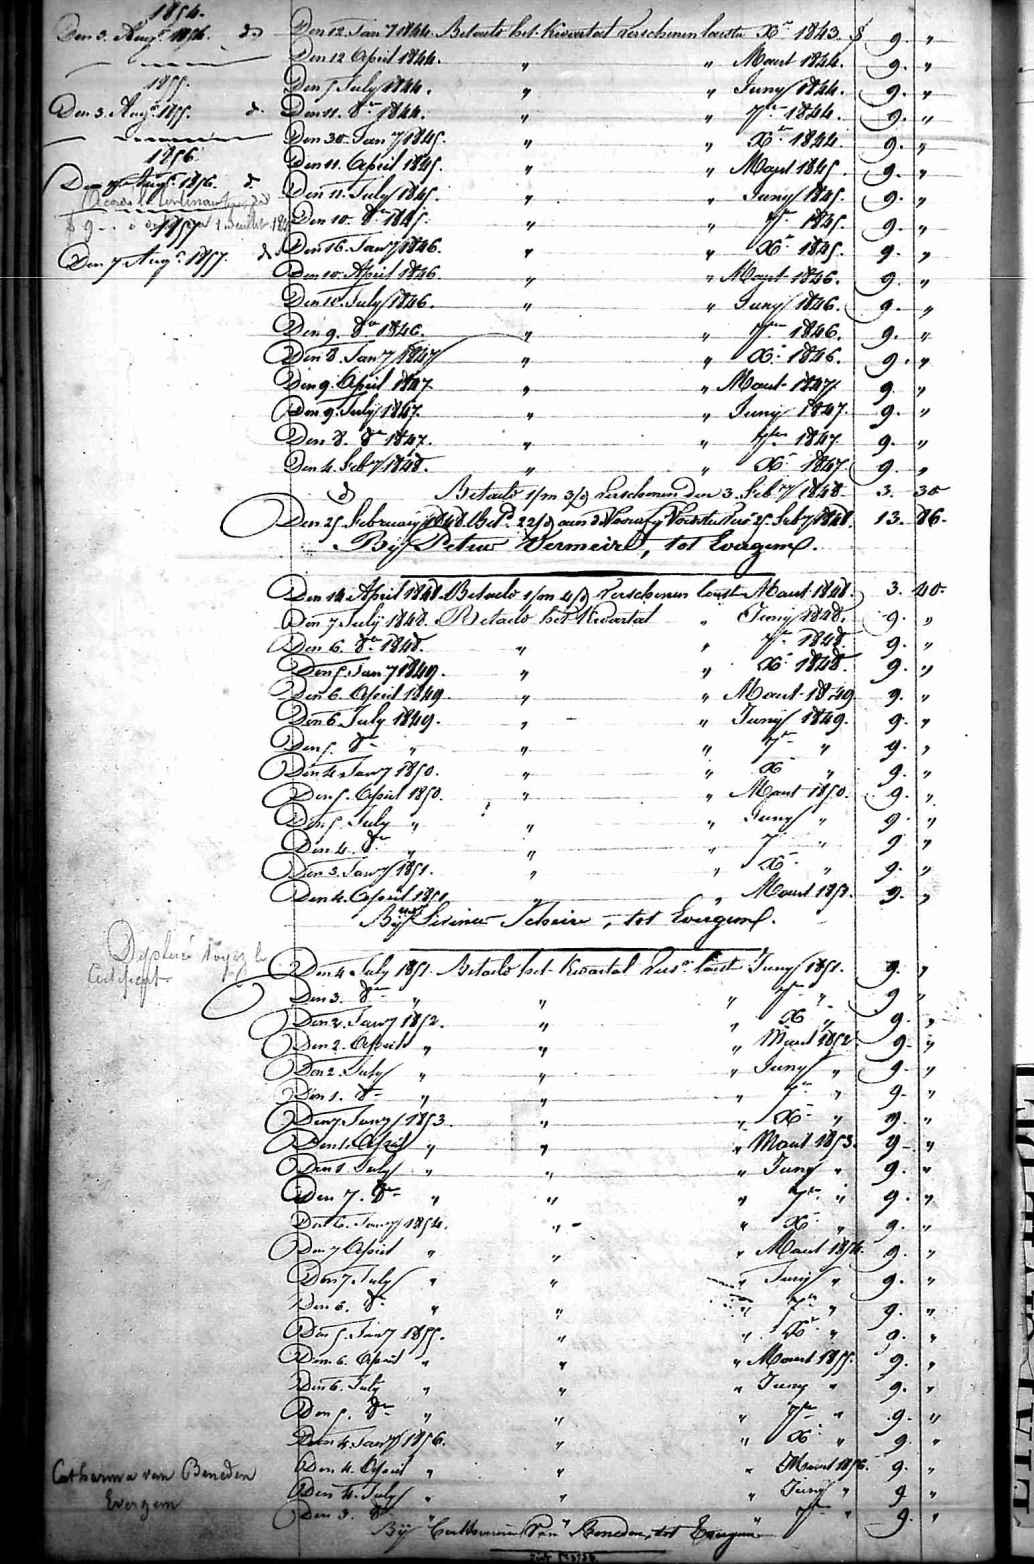 1854.
Den 3. Augt. 1854. do
1855.
Den 3. Augt. 1855. do
1856
Den Augt. 1856. do
1857
Den 7 Augt. 1857. do
Den 12 Jany 1844. Betaald het Kwartaal verschenen laatste Xer 1843. f 9. "
Den 12 April 1844. " " Maart 1844. 9. "
Den 5 July 1844. " " Juny 1844. 9. "
Den 11. 8er 1844. " " 7er 1844. 9. "
Den 30 Jany 1845. " " Xer 1844. 9. "
Den 11. April 1845. " " Maart 1845. 9. "
Den 11. July 1845. " " Juny 1845. 9. "
Den 10. 8er 1845. " " 7er 1845. 9. "
Den 16. Jany 1846. " " Xer 1845. 9. "
Den 10. April 1846. " " Maart 1846. 9. "
Den July 1846. " " Juny 1846. 9. "
Den 9. 8er 1846. " " 7er 1846. 9. "
Den 8. Jany 1847 " " Xer 1846. 9. "
Den 9. April 1847. " " Maart 1847. 9. "
Den 9. July 1847. " " Juny 1847. 9. "
Den 8. 8er 1847. " " 7er 1847. 9. "
Den 4. Feby 1848. " " Xer 1847. 9. "
do Betaald 1/m 3/d verschenen den 3. Feby 1848. 3. 30
Den 25 February 1848. Bet. 22/d aan 13. 86.
Bij Petrus Vermeire, tot Evergem.
Den 14 April 1848. Betaald 1/m 4/d verschenen laatste Maart 1848. 3. 40.
Den 7 July 1848. Betaald het Kwartaal " Juny 1848. 9. "
Den 6. 8er 1848. " " 7er 1848. 9. "
Den 5 Jany 1849. " " Xer 1848. 9. "
Den 6. April 1849. " " Maart 1849. 9. "
Den 6 July 1849. " " Juny 1849. 9. "
Den 5. 8er " " " 7er " 9. "
Den 4 Jany 1850. " " Xer " 9. "
Den 5. April 1850. " " Maart 1850. 9. "
Den 5. July " " " Juny " 9. "
Den 4. 8er " " " 7er " 9 "
Den 3. Jany 1851. " " Xer " 9. "
Den 4. April 1851. " " Maart 1851. 9. "
Bij , tot Evergem.
Den 4 July 1851. Betaald het Kwartaal versn laatste Juny 1851. 9. "
Den 3. 8er " " " 7er " 9 "
Den 2. Jany 1852. " " Xer " 9. "
Den 2. April " " " Maart 1852 9. "
Den 2. July " " " Juny " 9. "
Den 1. 8er " " " 7er " 9. "
Den 7 Jany 1853. " " Xer " 9. "
Den 1. April " " " Maart 1853. 9. "
Den 1 July " " " Juny " 9. "
Den 7. 8er " " " 7er " 9. "
Den 6. Jany 1854. " " Xer " 9. "
Den 7 April " " " Maart 1854. 9. "
Den 7 July " " " Juny " 9. "
Den 6. 8er " " " 7er " 9. "
Den 5 Jany 1855. " " Xer " 9. "
Den 6. April " " " Maart 1855. 9. "
Den 6. July " " " Juny " 9. "
Den 5. 8er " " " 7er " 9. "
Den 4 Jany 1856. " " Xer " 9. "
Den 4. April " " " Maart 1856. 9. "
Den 4. July " " " Juny " 9 "
Den 3. 8er " " " 7er " 9. "
Bij Catharina Van Beneden, tot Evergem
Catharina van Beneden
Evergem